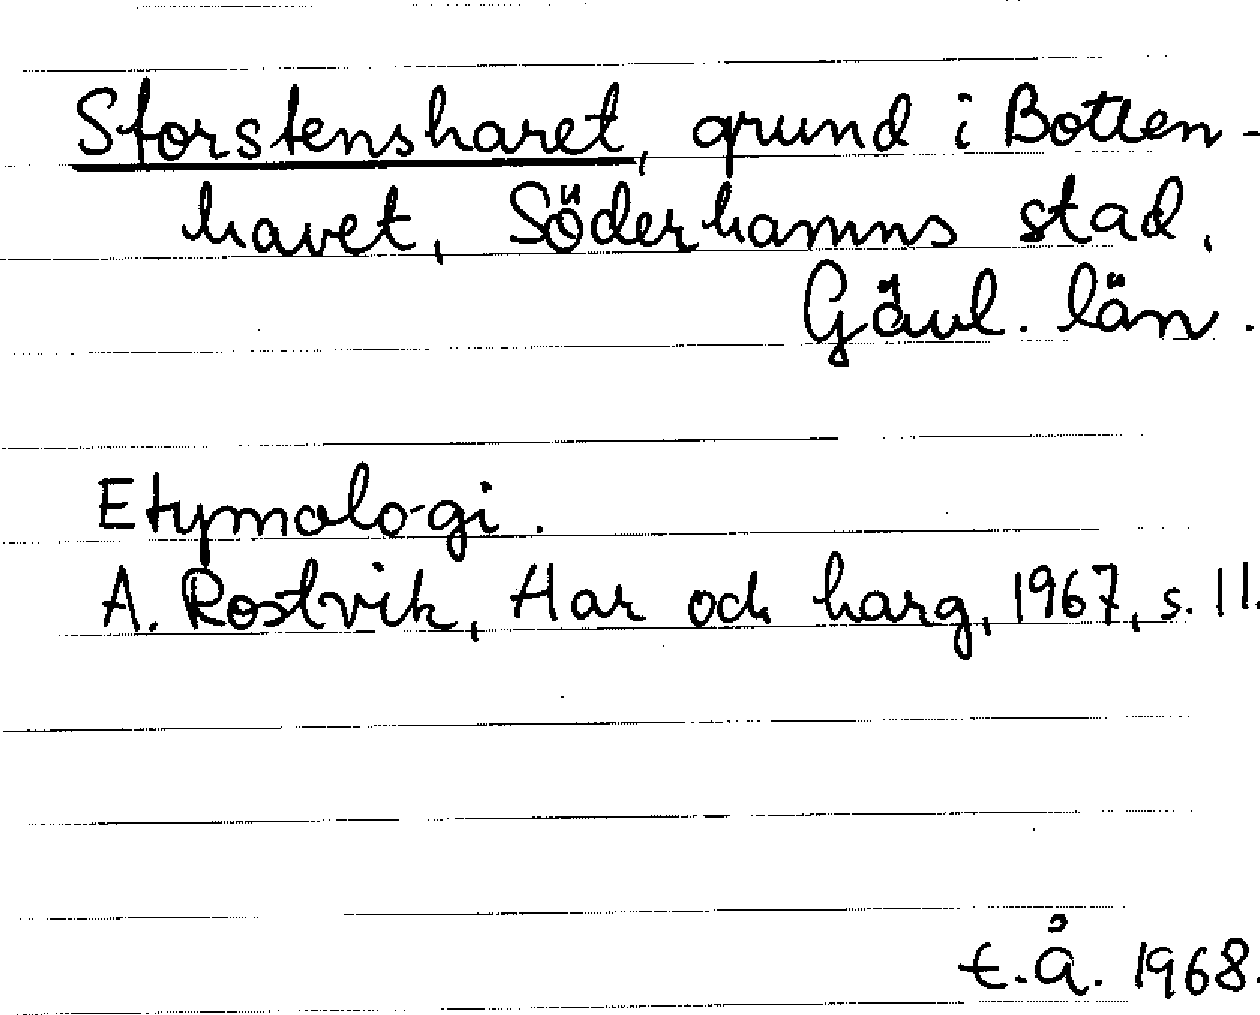 Storstensharet, grund i Botten-
havet, Söderhamns stad,
Gävl. län.
Etymologi.
A. Rostvik, Har och harg, 1967, s. 11.
t.å. 1968.